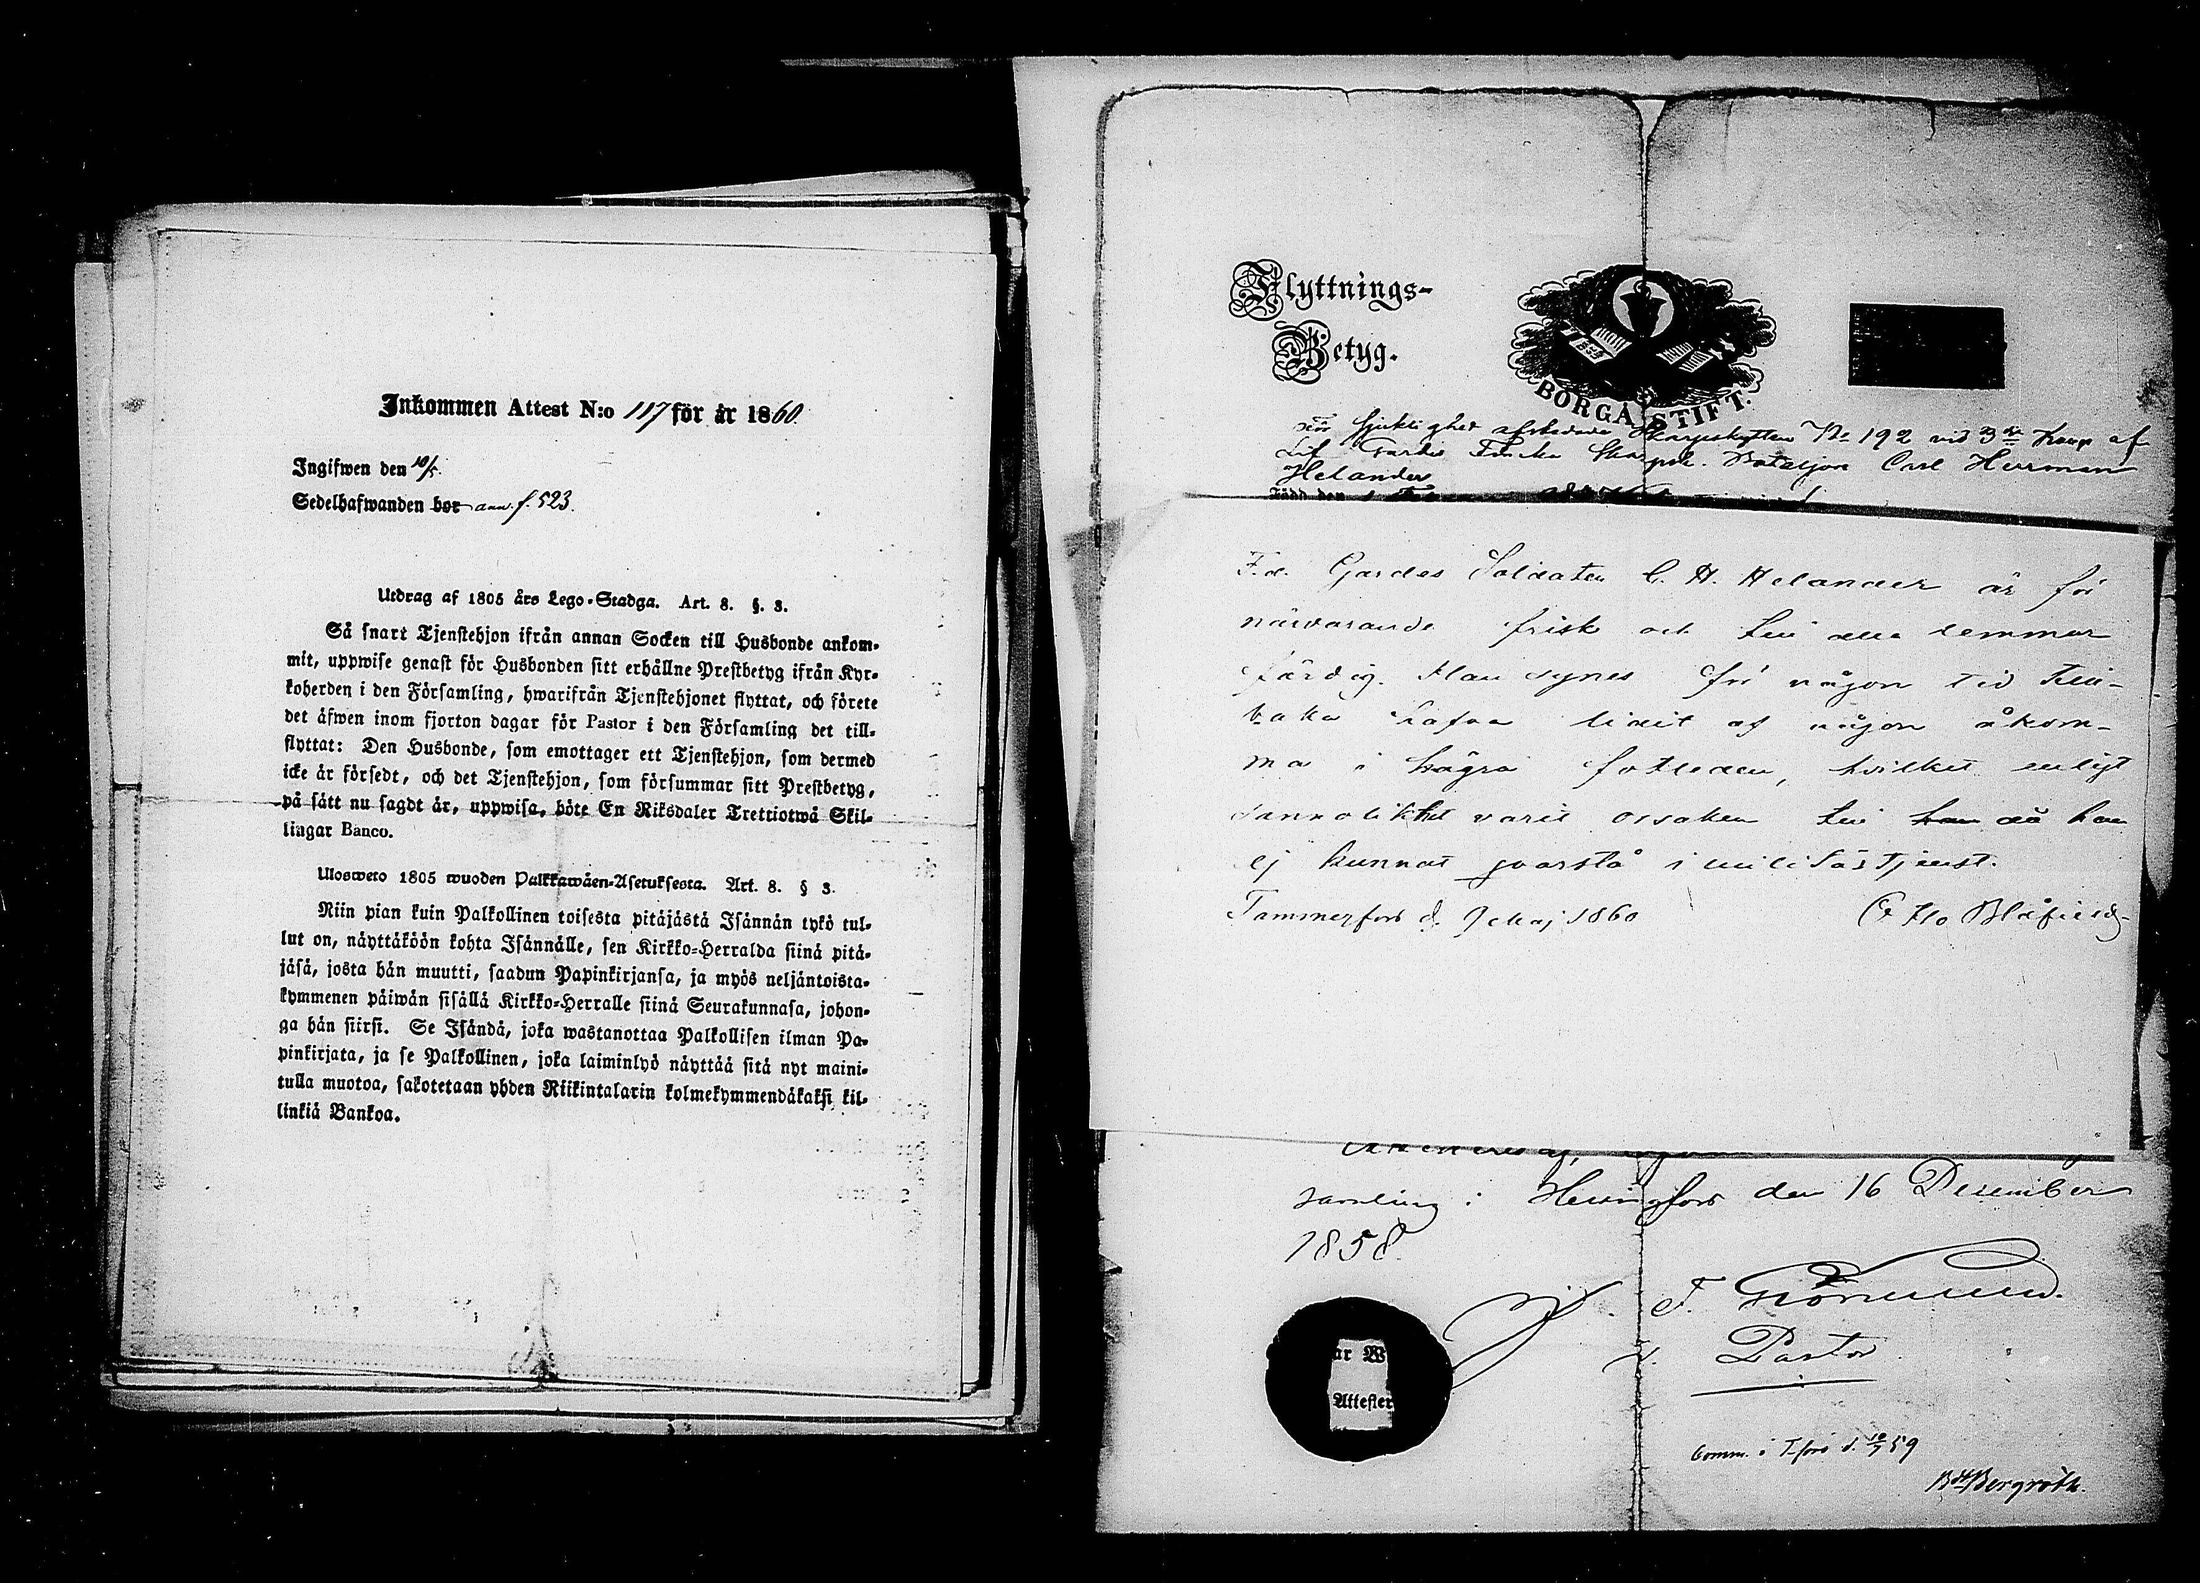 Inkommen Attest N:o 117 för år 1860.
Ingifwen den 10/5.
Sedelhafwanden bor ann. f. 523.
Utdrag af 1805 års Lego-Stadga. Art. 8. §. 3.
Så snart Tjenstehjon ifrån annan Socken till Husbonde ankom-
mit, uppwise genast för Husbonden sitt erhållne Prestbetyg ifrån Kyr-
koherden i den Församling, hwarifrån Tjenstehjonet flyttat, och förete
det äfwen inom fjorton dagar för Pastor i den Församling det till-
flyttat: Den Husbonde, som emottager ett Tjenstehjon, som dermed
icke är försedt, och det Tjenstehjon, som försummar sitt Prestbetyg,
på sätt nu sagdt är, uppwisa, böte En Riksdaler Trettiotwå Skil-
lingar Banco.
Ulosweto 1805 wuoden Palkkawäen-Asetuksesta. Art. 8. § 3.
Niin pian kuin Palkollinen toisesta pitäjästä Isännän tykö tul-
lut on, näyttäköön kohta Isännälle, sen Kirkko-Herralda siinä pitä-
jäsä, josta hän muutti, saadun Papinkirjansa, ja myös neljäntoista-
kymmenen päiwän sisällä Kirkko-Herralle siinä Seurakunnasa, johon-
ga hän siirsi. Se Isändä, joka wastanottaa Palkollisen ilman Pa-
pinkirjata, ja se Palkollinen, joka laiminlyö näyttää sitä nyt maini-
tulla muotoa, sakotetaan yhden Riikintalarin kolmekymmendäkaksi kil-
linkiä Bankoa.
Flyttnings-
Betyg.
BORGÅ STIFT.
för sjuklighet afskedade Skarpskytten No 192 vid 3dje Komp af
Lif Gardes Finska Skarpsk. Bataljon Carl Herrman
Helander
Född den 1
F.d. Gardes Soldaten C. H. Helander är för
närvarande frisk och till alla lemmar
färdig. Han synes för någon tid till-
baka hafva lidit af någon åkom-
ma i högra fotleden, hvilket enligt
sannolikhet varit orsaken till han då han
ej kunnat qvarstå i militärtjenst.
Tammerfors d. 9 Maj 1860 Otto Blåfield
samling i Helsingfors den 16 December
1858.
F.
Pastor
ar W
Attester
Comm. i T-fors d. 10/7 59
Bergroth.